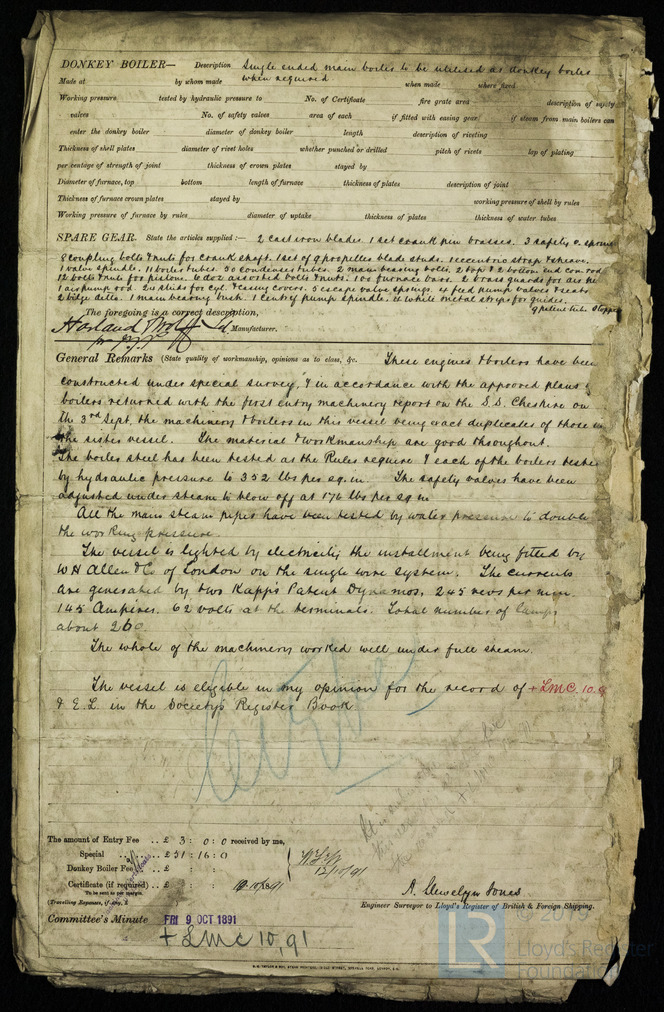 DONKEY BOILER— Description Single ended main boiler to be utilised as donkey boiler
Made at by whom made when required when made where fixed
Working pressure tested by hydraulic pressure to No. of Certificate fire grate area description of safety
valves No. of safety valves area of each if fitted with easing gear if steam from main boilers can
enter the donkey boiler diameter of donkey boiler length description of riveting
Thickness of shell plates diameter of rivet holes whether punched or drilled pitch of rivets lap of plating
per centage of strength of joint thickness of crown plates stayed by
Diameter of furnace, top bottom length of furnace thickness of plates description of joint
Thickness of furnace crown plates stayed by working pressure of shell by rules
Working pressure of furnace by rules diameter of uptake thickness of plates thickness of water tubes
SPARE GEAR. State the articles supplied: 2 cast iron blades. 1 set crank pin brasses. 3 safety v. springs
8 coupling bolts & nuts for crank shaft. 1 set of propeller blade studs. 1 eccentric strap & sheave.
1 valve spindle. 11 boiler tubes. 50 condenser tubes. 2 main bearing bolts. 2 top & 2 bottom end con. rod
12 bolts & nuts for piston. 16 doz assorted bolts & nuts. 100 furnace bars. 2 brass guards for air
1 air pump rod 20 studs for cyl. & casing covers. 5 escape valve springs. 4 feed pump valves & seats
2 bilge delta. 1 main bearing bush. 1 centrf pump spindle. 12 white metal strips for guides.
9 patent tube stoppers
The foregoing is a correct description,
Harland & Wolff Ld Manufacturer.
General Remarks (State quality of workmanship, opinions as to class, &c. These engines & boilers have been
constructed under special survey, & in accordance with the approved plans of
boilers returned with the first entry machinery report on the S.S. Cheshire on
the 3rd Sept. the machinery & boilers in this vessel being exact duplicates of those in
the sister vessel. The material & workmanship are good throughout.
The boiler steel has been tested as the Rules require & each of the boilers tested
by hydraulic pressure to 352 lbs per sq. in. The safety valves have been
adjusted under steam to blow off at 176 lbs per sq in
All the main steam pipes have been tested by water pressure to double
the working pressure.
The vessel is lighted by electricity the installment being fitted by
W H Allen & Co of London on the single wire system. The currents
are generated by two Kapp's Patent Dynamos, 245 revs per min.
145 Ampères. 62 volts at the terminals. Total number of lamps
about 260
The whole of the machinery worked well under full steam.
The vessel is eligible in my opinion for the record of +LMC. 10.9
& E.L. in the Society's Register Book.
The amount of Entry Fee .. £ 3 : 0 : 0 received by me,
Special .. £ 31 : 16 : 0
Donkey Boiler Fee .. £ : :
Certificate (if required) .. £ : :
To be sent as per margin.
(Travelling Expenses, if any, £ )
12/10/91
A. Llewelyn Jones
Engineer Surveyor to Lloyd's Register of British & Foreign Shipping.
Committee's Minute FRI 9 OCT 1891
+ LMC 10,91
LR
Lloyd's Register
Foundation